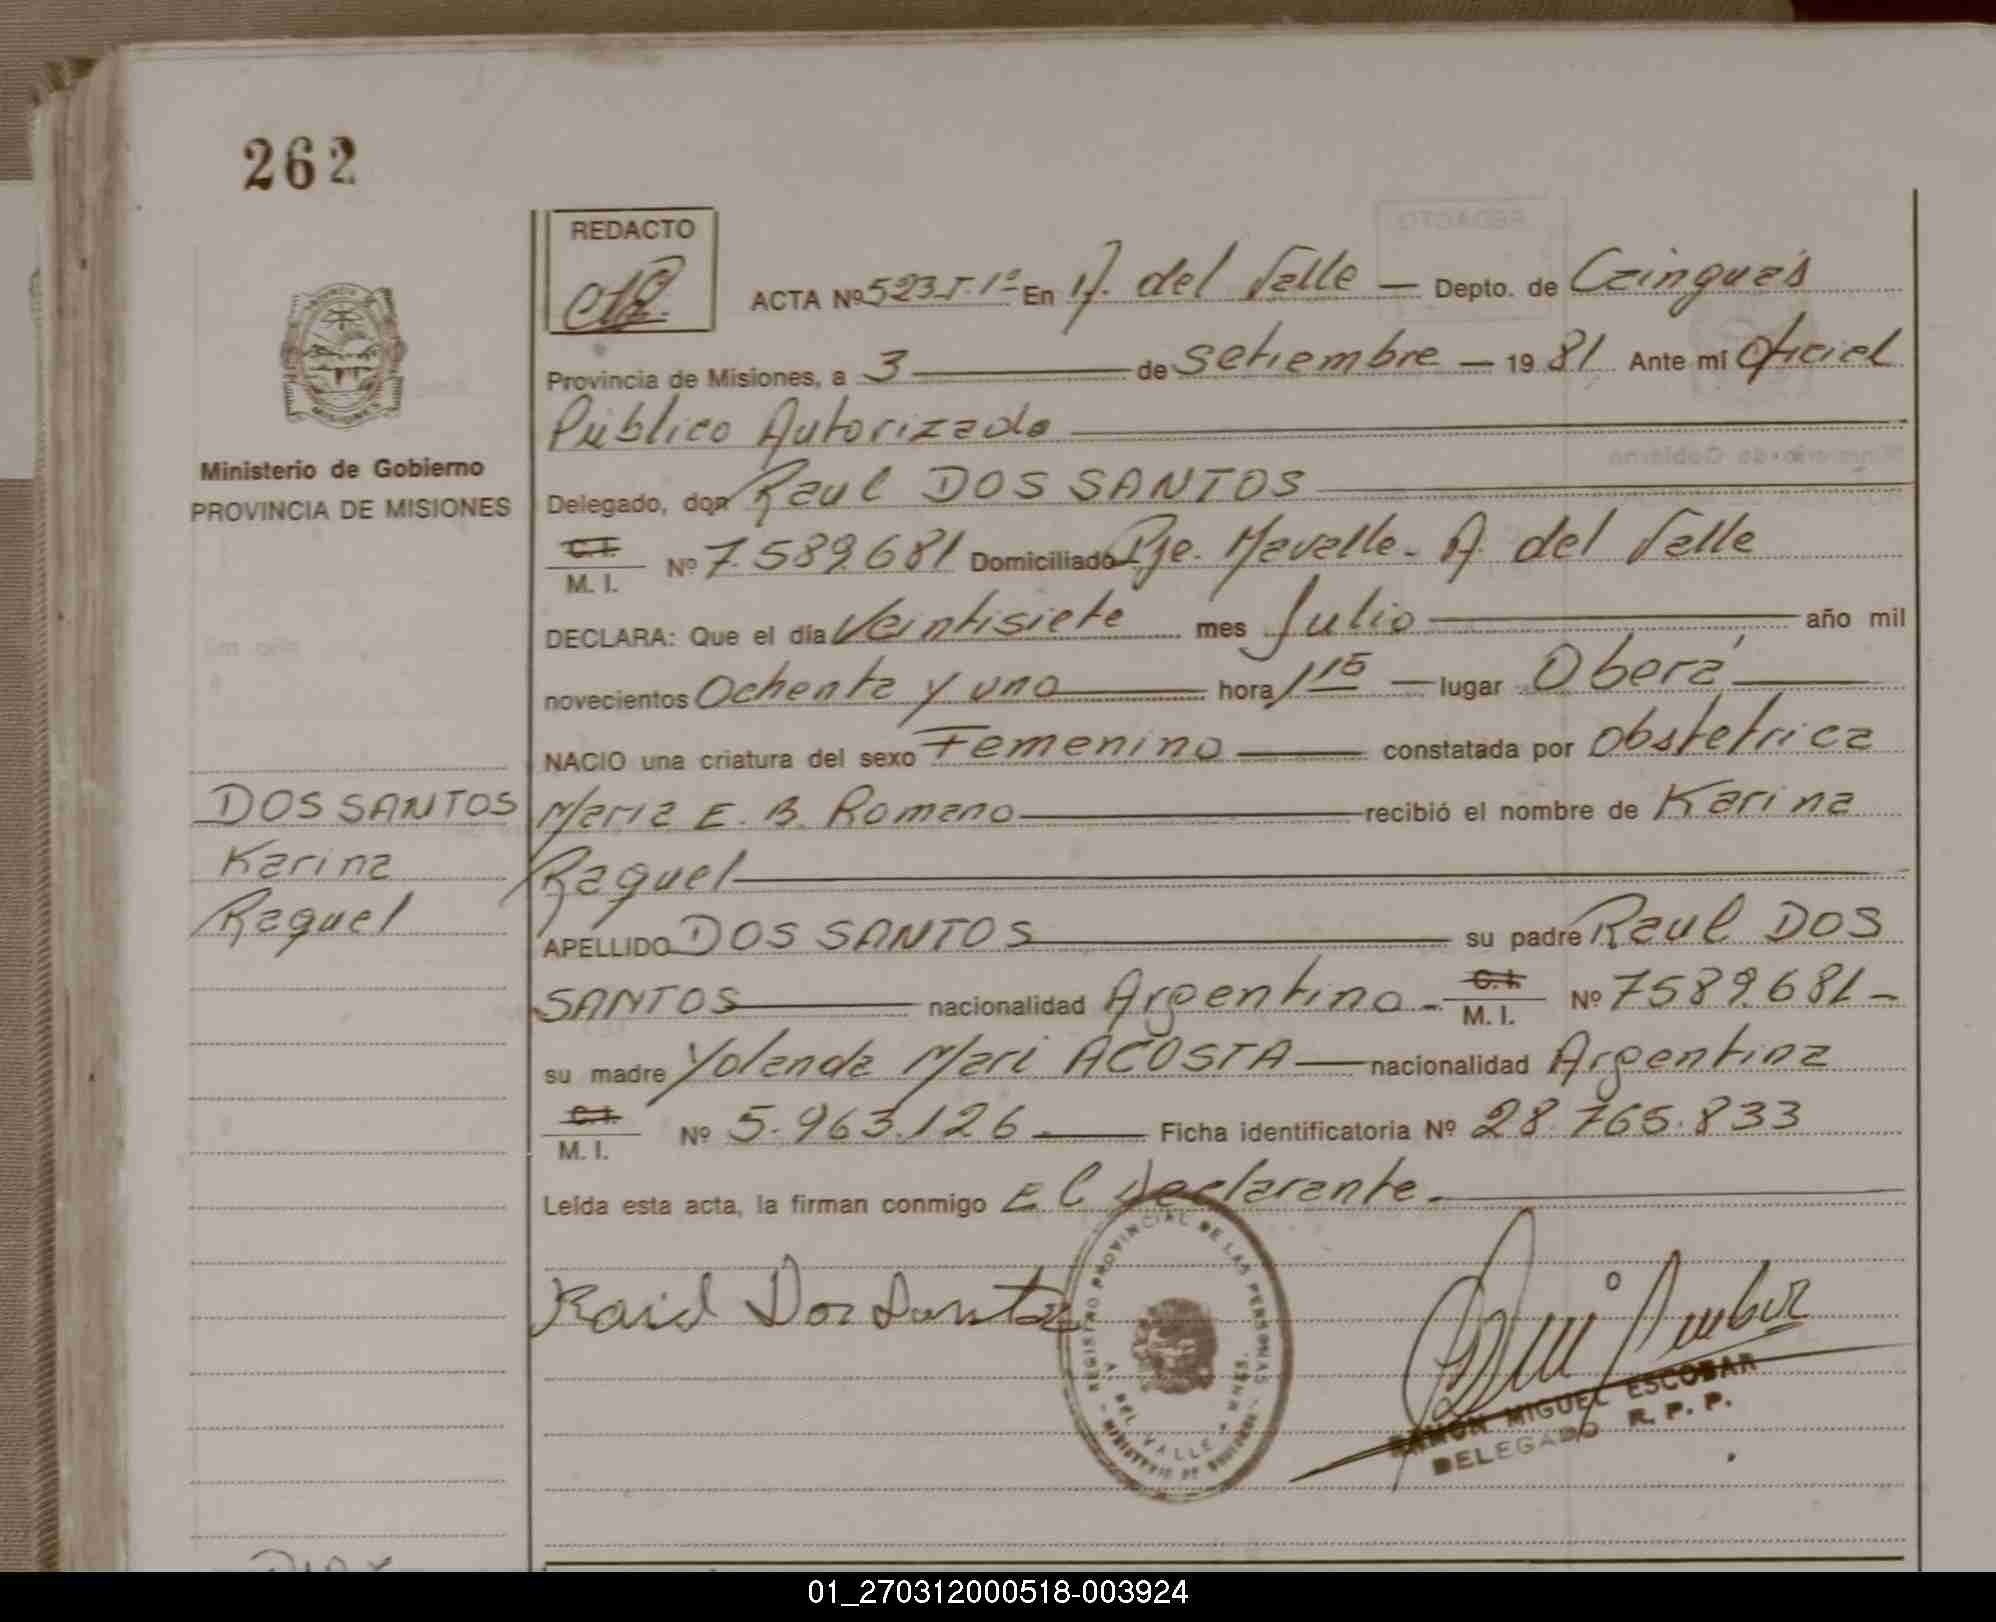 262
REDACTO
ACTA Nº 523-T. 1º En A. del Valle — Depto. de Cainguás
Provincia de Misiones, a 3 — de Setiembre — 1981 Ante mí Oficial
Público Autorizado
Ministerio de Gobierno
PROVINCIA DE MISIONES
Delegado, don Raul DOS SANTOS
C.I.
M. I. Nº 7.589.681 Domiciliado Pje. Mavalle - A. del Valle
DECLARA: Que el día Veintisiete mes Julio — año mil
novecientos Ochenta y uno — hora 1 15 — lugar Oberá
NACIO una criatura del sexo Femenino — constatada por obstetrica
María E. B. Romano — recibió el nombre de Karina
Raquel
DOS SANTOS
Karina
Raquel
APELLIDO DOS SANTOS — su padre Raul DOS
SANTOS — nacionalidad Argentino - C.I.
M. I. Nº 7589.681 -
su madre Yolanda Mari ACOSTA — nacionalidad Argentina
C.I.
M. I. Nº 5.963.126. — Ficha identificatoria Nº 28.765.833
Leída esta acta, la firman conmigo El Declarante.
Raul Dos Santos
REGISTRO PROVINCIAL DE LAS PERSONAS
A. DEL VALLE - MNES.
MINISTERIO DE GOBIERNO
RAMON MIGUEL ESCOBAR
DELEGADO R. P. P.
01_270312000518-003924